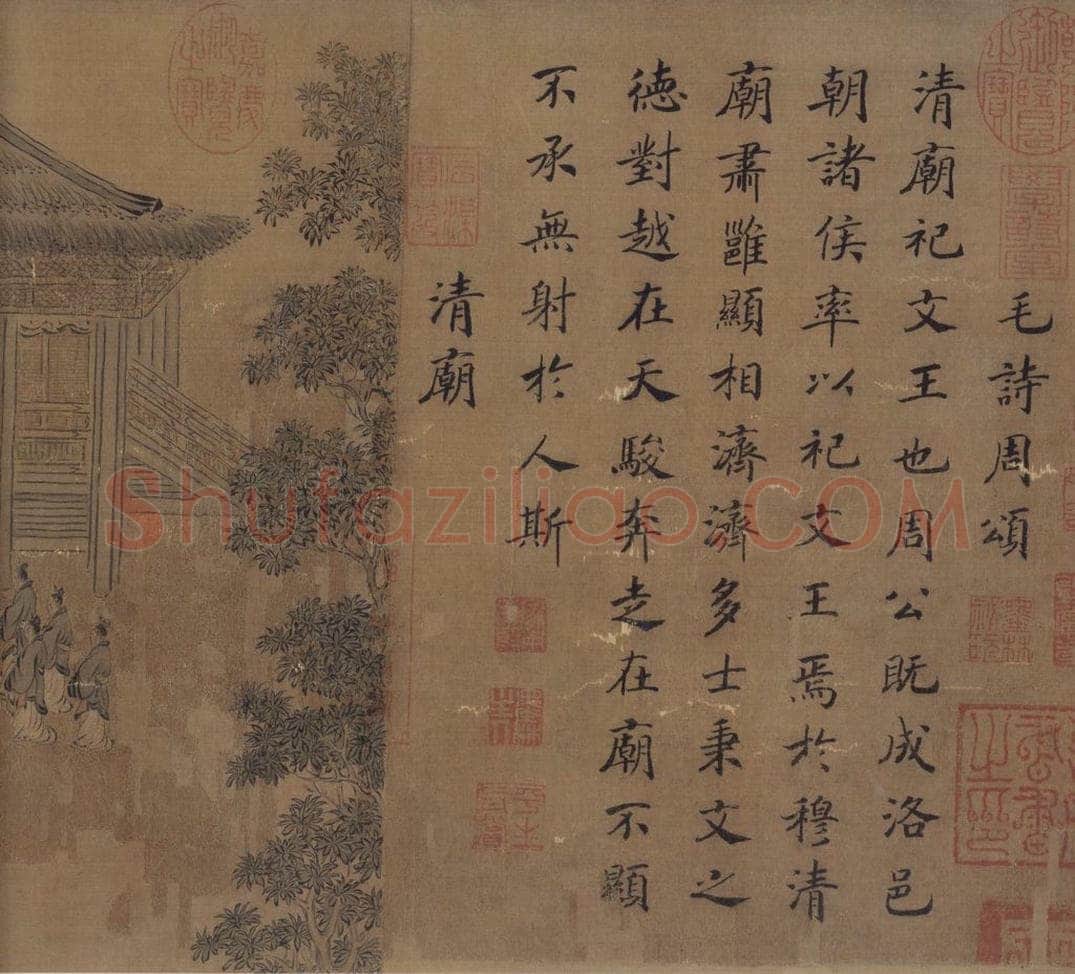 毛詩周頌
清廟祀文王也周公既成洛邑
朝諸侯率以祀文王焉於穆清
廟肅雝顯相濟濟多士秉文之
德對越在天駿奔走在廟不顯
不承無射於人斯
清廟
Shufaziliao.COM